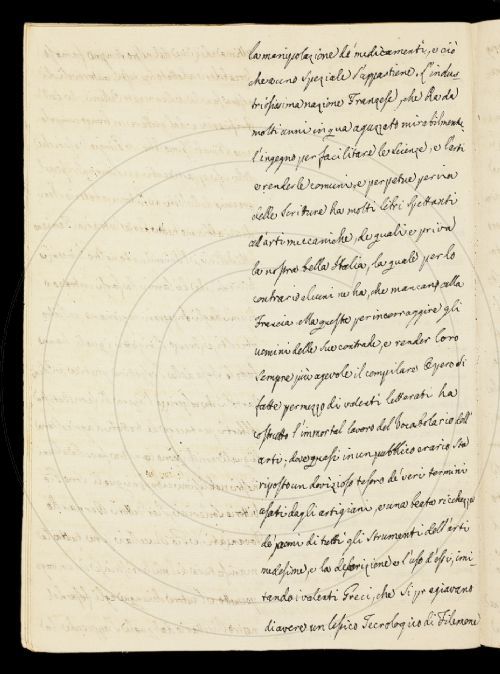 la manipolazione de' medicamenti, e ciò
che a uno speziale s'appartiene. L'indus
triosissima nazione Franzese, che ha da
molti anni in qua aguzzato mirabilmente
l'ingegno per facilitare le Scienze, e l'arti
e renderle comuni, e perpetue per via
delle Scritture ha molti libri spettanti
all'arti meccaniche, de quali e priva
la nostra bella Italia, la quale per lo
contrario alcuni ne ha, che mancano alla
Francia. Ma questa per incorraggire gli
uomini delle sue contrade, e render loro
sempre più agevole il compilare Opere di
fatte per mezzo di valenti letterati ha
costrutto l'immortal lavoro del Vocabolario dell'
arti, dove quasi in un pubblico erario sta
riposto un dovizioso tesoro di veri termini
usati dagli artigiani, e una beata ricchezza
de' nomi di tutti gli strumenti dell'arti
medesime, e la descrizione e l'uso d'essi, imi-
tando i valenti Greci, che si pregiavano
di avere un lessico Tecnologico di Filemone